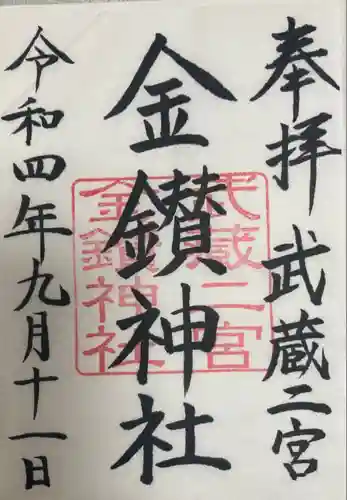 奉拝 武蔵二宮
金鑚神社
武蔵二宮
金鑚神社
令和四年九月十一日